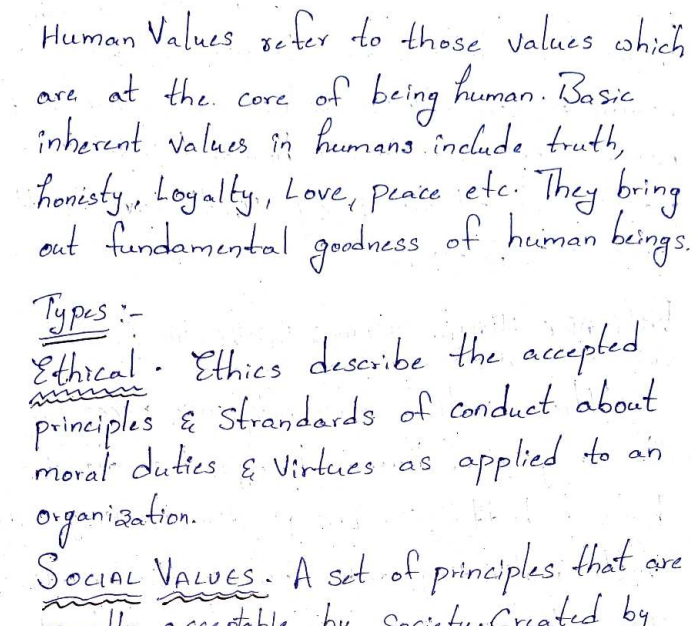 Human Values refer to those values which
are at the core of being human. Basic
inherent values in humans include truth,
honisty, Loyalty, Love, peace etc. They bring
out fundamental goodness of human beings.
Types :-
Ethical. Ethics describe the accepted
principles & Strandards of conduct about
moral duties & Virtues as applied to an
organization.
SOCIAL VALUES. A set of principles that are
by Society. Created by